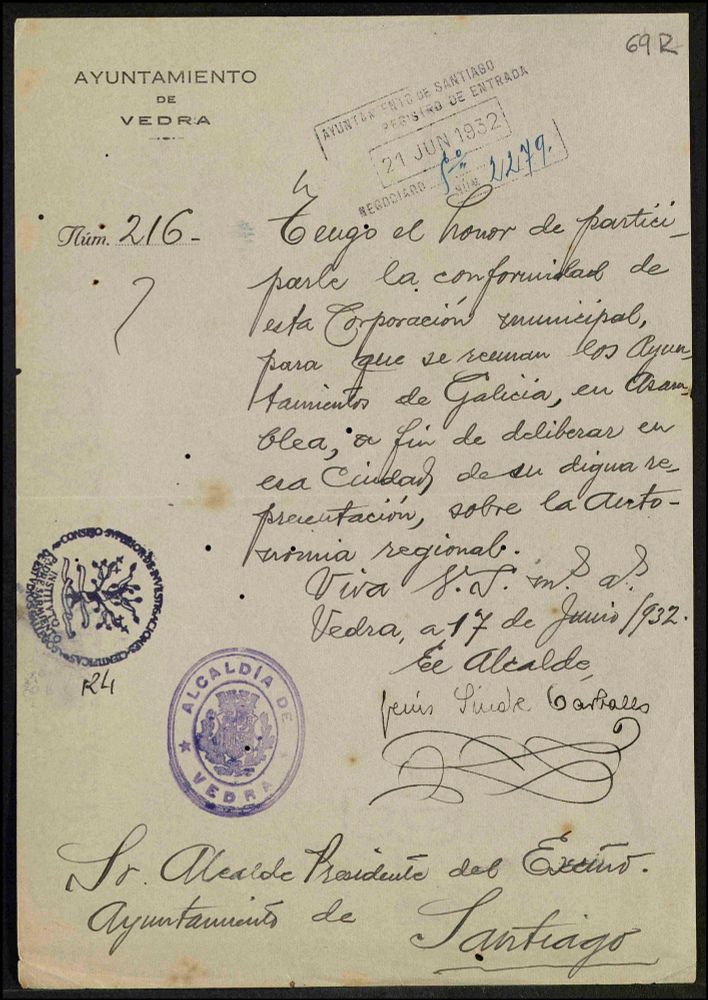 69R
AYUNTAMIENTO
DE
VEDRA
AYUNTAMIENTO DE SANTIAGO
REGISTRO DE ENTRADA
21 JUN 1932
NEGOCIADO NÚM. 2279.
Núm. 216-
Tengo el honor de partici-
parle la conformidad de
esta Corporación municipal,
para que se reunan los Ayun-
tamientos de Galicia, en Asam-
blea, a fin de deliberar en
esa Ciudad, de su digna re-
presentación, sobre la Auto-
nomia regional.
Viva V.S. m.s a.s
Vedra, a 17 de Junio 1932.
El Alcalde,
CONSEJO SUPERIOR DE INVESTIGACIONES CIENTIFICAS
INSTITUTO
PADRE SARMIENTO
DE ESTUDIOS
R4
ALCALDÍA DE
VEDRA
Sr. Alcalde Presidente del Excmo.
Ayuntamiento de
Santiago